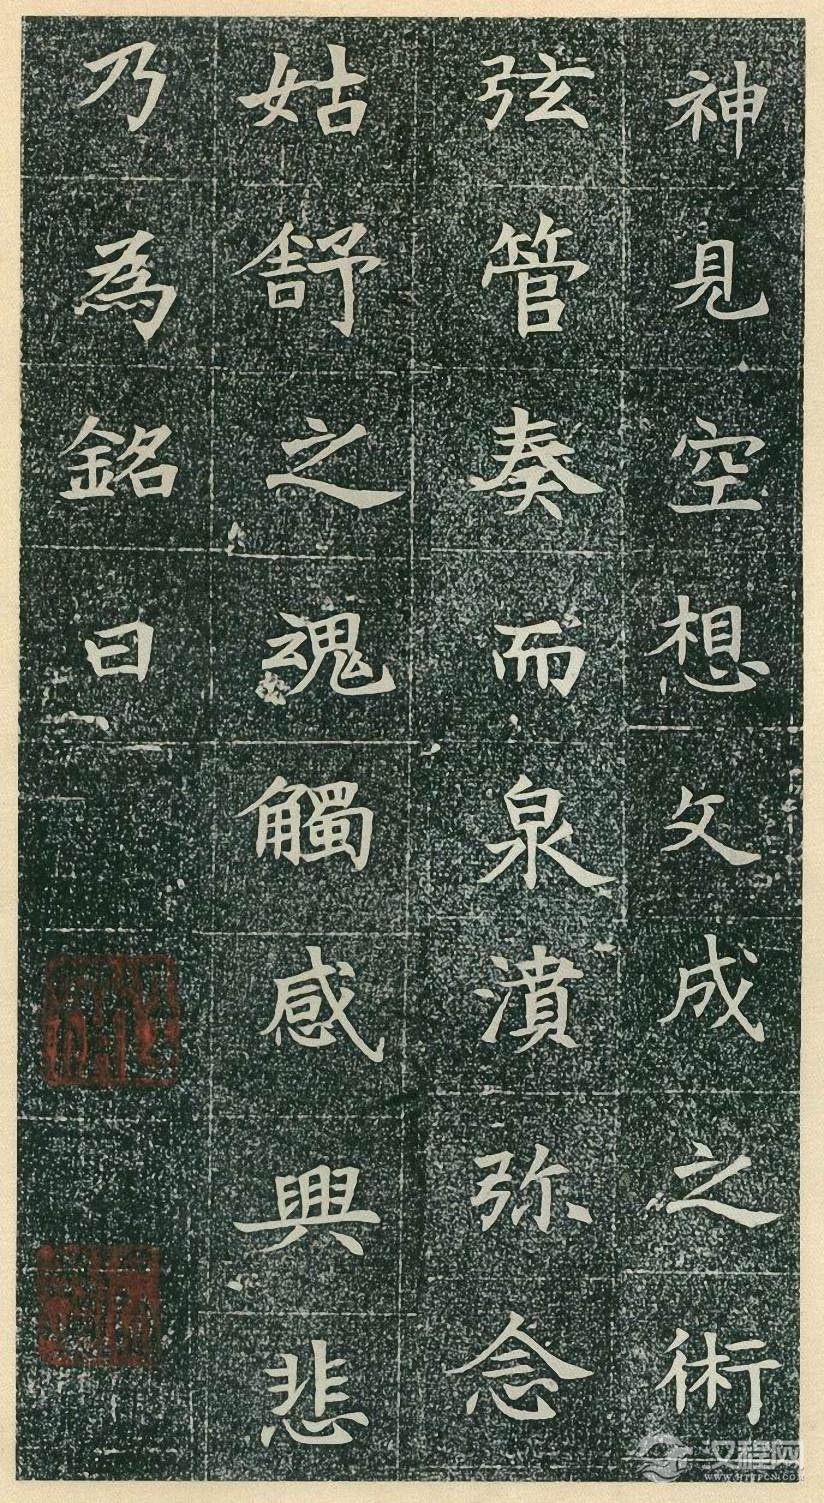 神見空想文成之術
弦管奏而泉濆弥念
姑舒之魂觸感興悲
乃為銘曰
汉程网
WWW.HTTPCN.COM